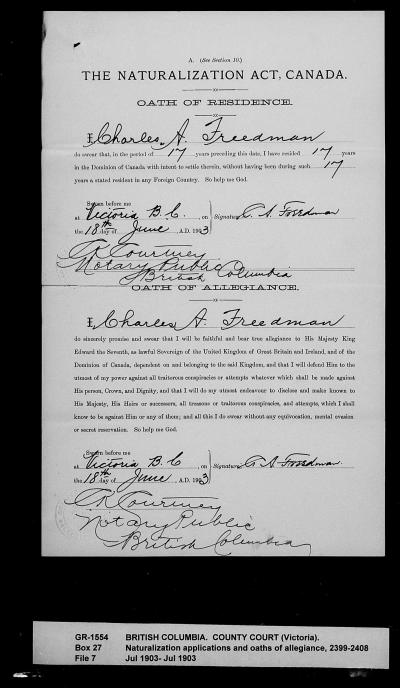 A. (See Section 10.)
THE NATURALIZATION ACT, CANADA.
OATH OF RESIDENCE.
I, Charles A. Freedman
do swear that, in the period of 17 years preceding this date, I have resided 17 years
in the Dominion of Canada with intent to settle therein, without having been during such 17
years a stated resident in any Foreign Country. So help me God.
Sworn before me
at Victoria B.C., on
the 18th day of June, A.D. 1903
Signature C. A. Freedman
Courtney
Notary Public
British Columbia
OATH OF ALLEGIANCE.
I, Charles A. Freedman
do sincerely promise and swear that I will be faithful and bear true allegiance to His Majesty King
Edward the Seventh, as lawful Sovereign of the United Kingdom of Great Britain and Ireland, and of the
Dominion of Canada, dependent on and belonging to the said Kingdom, and that I will defend Him to the
utmost of my power against all traitorous conspiracies or attempts whatever which shall be made against
his Person, Crown, and Dignity, and that I will do my utmost endeavour to disclose and make known to
His Majesty, His Heirs or successors, all treasons or traitorous conspiracies, and attempts, which I shall
know to be against Him or any of them; and all this I do swear without any equivocation, mental evasion
or secret reservation. So help me God.
Sworn before me
at Victoria B.C, on
the 18th day of June, A.D. 1903
Signature C. A. Freedman.
Courtney
Notary Public
British Columbia
GR-1554 BRITISH COLUMBIA. COUNTY COURT (Victoria).
Box 27 Naturalization applications and oaths of allegiance, 2399-2408
File 7 Jul 1903- Jul 1903